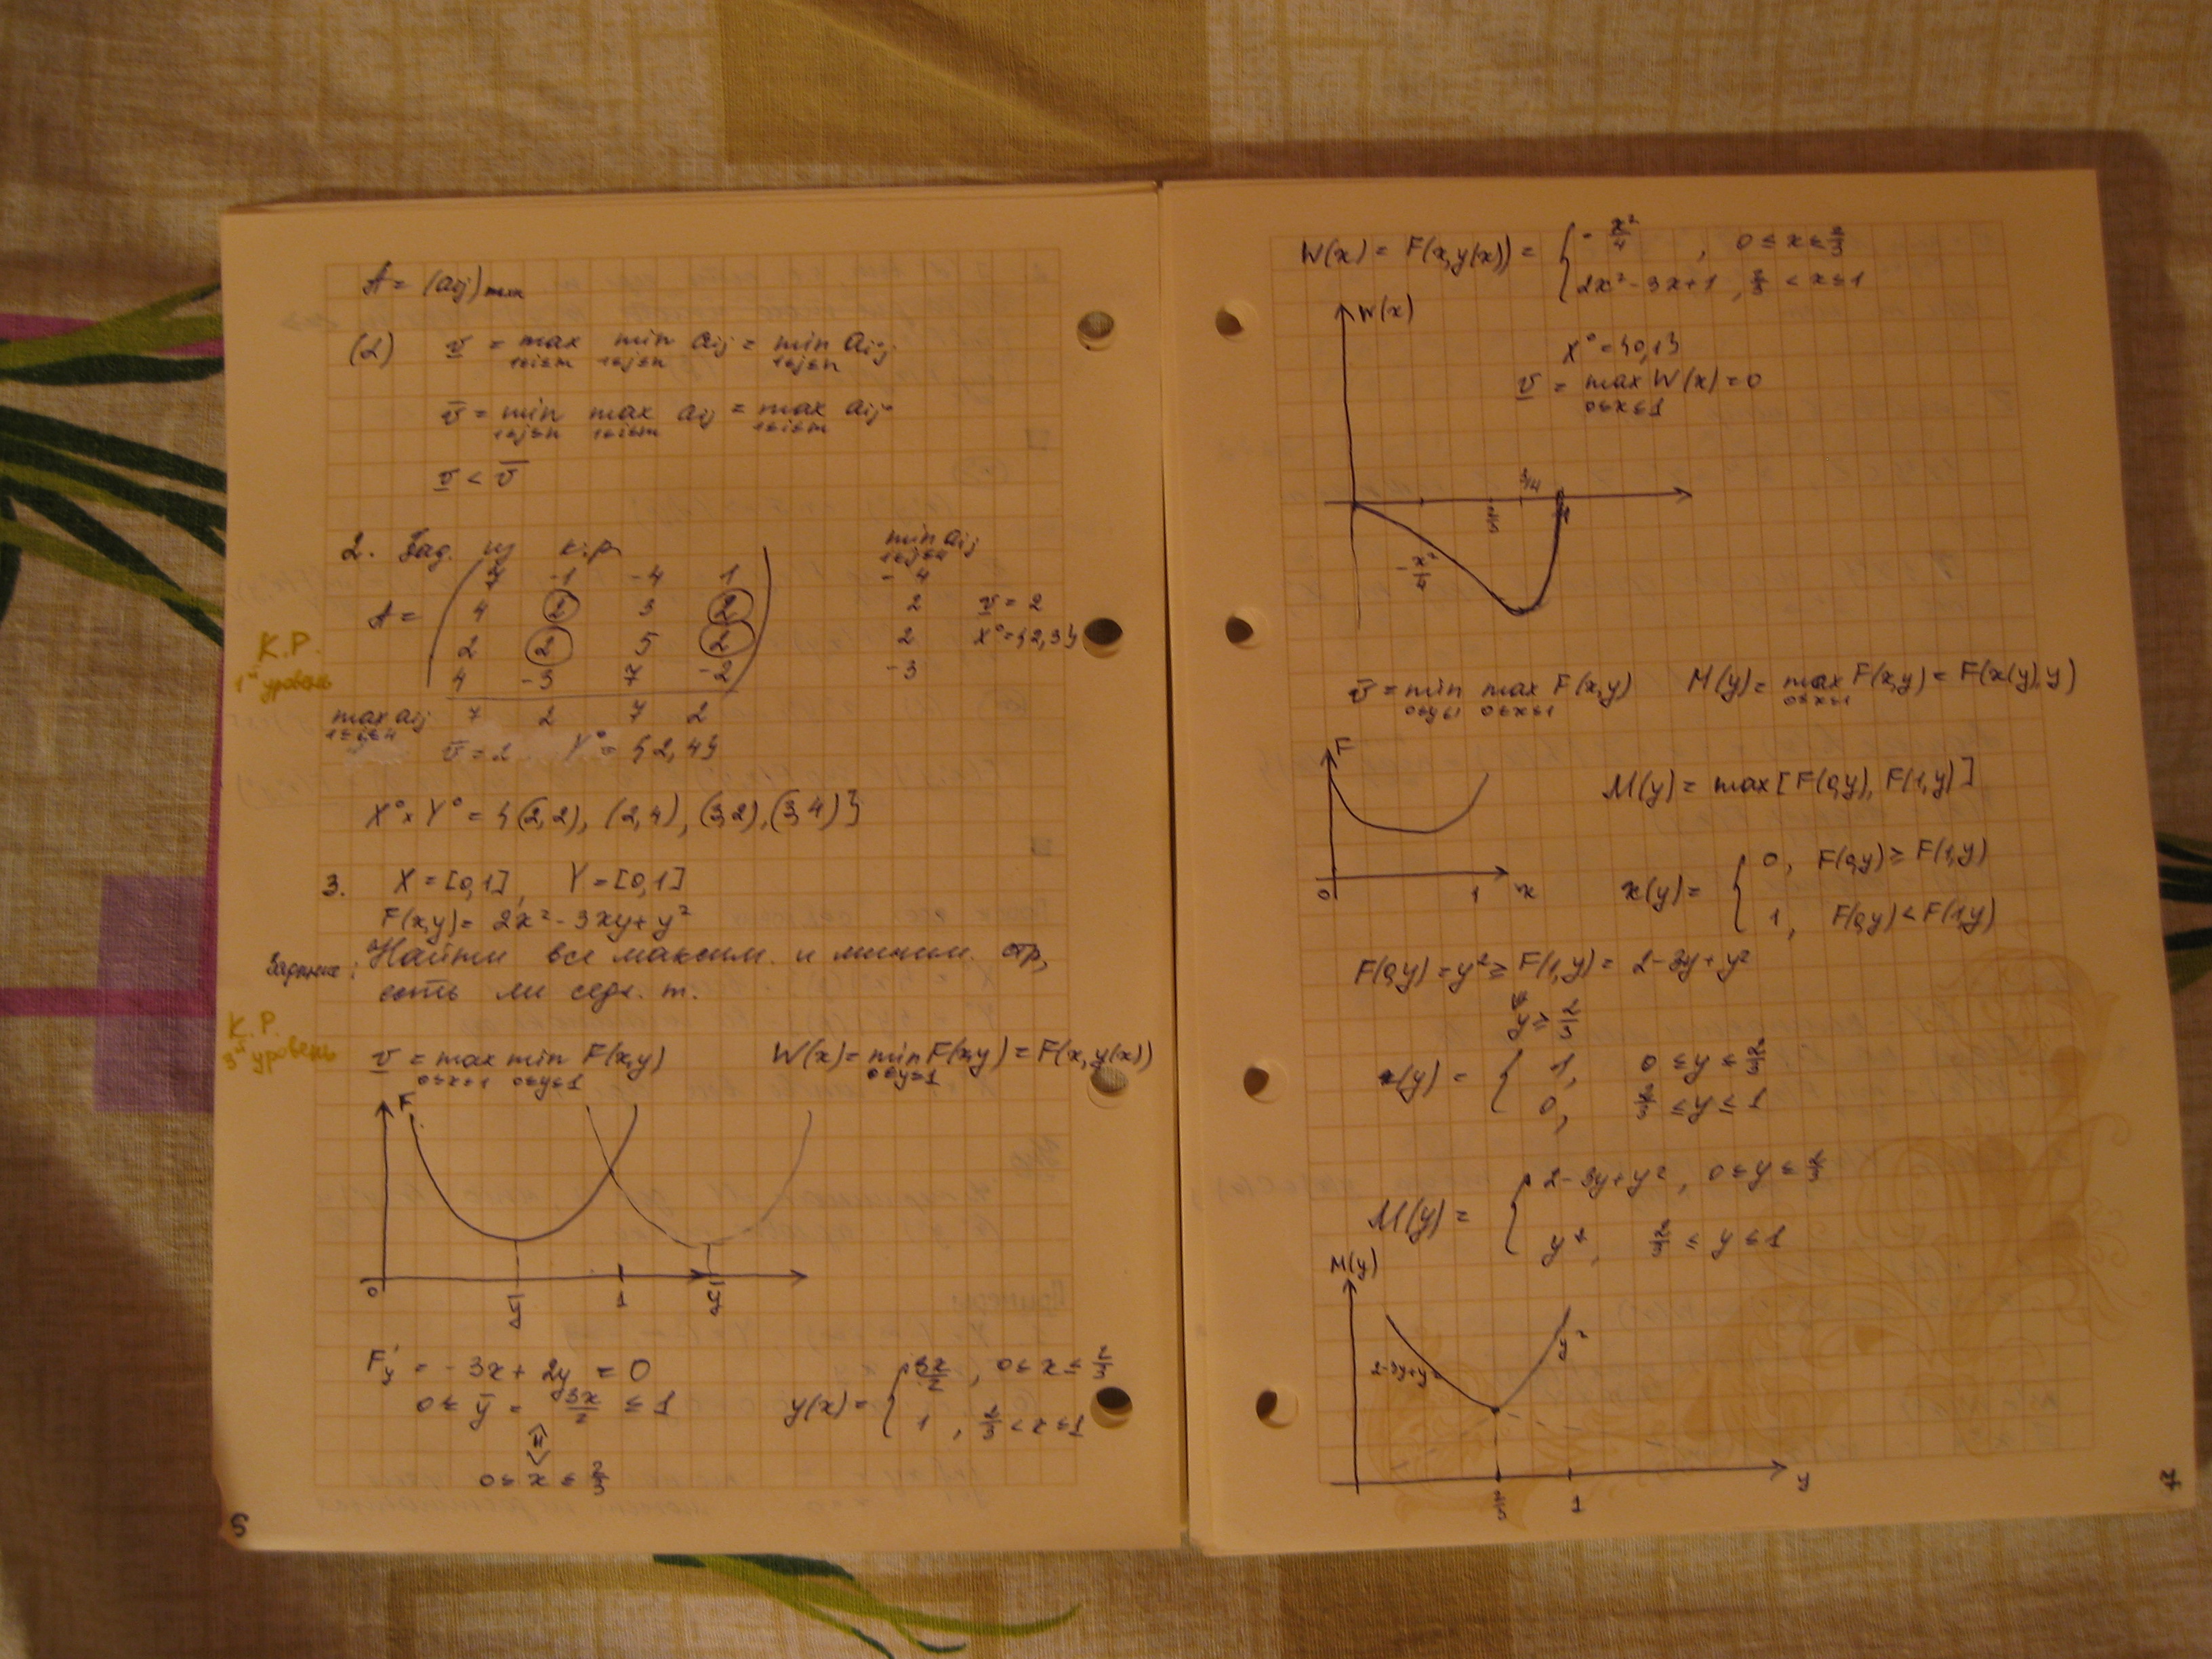 A = (aij)mxn
(2) v = max 1≤i≤m min 1≤j≤n aij = min 1≤j≤n ai°j
v̄ = min 1≤j≤n max 1≤i≤m aij = max 1≤i≤m aij°
v < v̄
2. Зад. из к.р.
min 1≤j≤4 aij
A = ( 7 -1 -4 1 ) -4
4 2 3 2 2 v = 2
2 2 5 2 2 X° = {2,3}
4 -3 7 -2 -3
К.Р.
1й уровень
max 1≤i≤4 aij 7 2 7 2
v̄ = 2 Y° = {2,4}
X° × Y° = {(2,2), (2,4), (3,2), (3,4)}
3. X = [0,1], Y = [0,1]
F(x,y) = 2x² - 3xy + y²
Задание: Найти все максим. и миним. стр,
есть ли седл. т.
К.Р.
3й уровень
v = max 0≤x≤1 min 0≤y≤1 F(x,y) W(x) = min 0≤y≤1 F(x,y) = F(x,y(x))
F
0 ȳ 1 ȳ
F'y = -3x + 2y = 0
0 ≤ ȳ = 3x/2 ≤ 1
⇕
0 ≤ x ≤ 2/3
y(x) = { 3x/2, 0 ≤ x ≤ 2/3
1, 2/3 < x ≤ 1
W(x) = F(x,y(x)) = { - x²/4, 0 ≤ x ≤ 2/3
2x² - 3x + 1, 2/3 < x ≤ 1
W(x)
X° = {0,1}
v = max 0≤x≤1 W(x) = 0
2/3 3/4 1
- x²/4
v̄ = min 0≤y≤1 max 0≤x≤1 F(x,y) M(y) = max 0≤x≤1 F(x,y) = F(x(y),y)
F
M(y) = max[F(0,y), F(1,y)]
0 1 x
x(y) = { 0, F(0,y) ≥ F(1,y)
1, F(0,y) < F(1,y)
F(0,y) = y² ≥ F(1,y) = 2 - 3y + y²
⇕
y ≥ 2/3
x(y) = { 1, 0 ≤ y ≤ 2/3
0, 2/3 ≤ y ≤ 1
M(y) = { 2 - 3y + y², 0 ≤ y ≤ 2/3
y², 2/3 ≤ y ≤ 1
M(y)
2-3y+y² y²
2/3 1 y
7